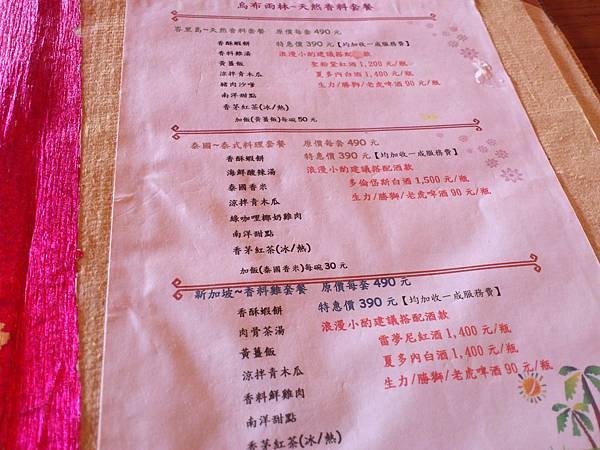 烏布雨林~天然香料套餐
峇里島~天然香料套餐 原價每套490元
香酥蝦餅 特急價390元【均加收一成服務費】
香料雞湯 浪漫小酌建議搭配酒款
黃薑飯 聖粉堂紅酒1,200元/瓶
涼拌青木瓜 夏多內白酒1,400元/瓶
豬肉沙嗲 生力/勝獅/老虎啤酒90元/瓶
南洋甜點
香茅紅茶(冰/熱)
加飯(黃薑飯)每碗50元
泰國~泰式料理套餐 原價每套490元
香酥蝦餅 特急價390元【均加收一成服務費】
海鮮酸辣湯 浪漫小酌建議搭配酒款
泰國香米 多倫岱斯白酒1,500元/瓶
涼拌青木瓜 生力/勝獅/老虎啤酒90元/瓶
綠咖哩椰奶雞肉
南洋甜點
香茅紅茶(冰/熱)
加飯(泰國香米)每碗30元
新加坡~香料雞套餐 原價每套490元
香酥蝦餅 特急價390元【均加收一成服務費】
肉骨茶湯 浪漫小酌建議搭配酒款
黃薑飯 雷夢尼紅酒1,400元/瓶
涼拌青木瓜 夏多內白酒1,400元/瓶
香料鮮雞肉 生力/勝獅/老虎啤酒90元/瓶
南洋甜點
香茅紅茶(冰/熱)